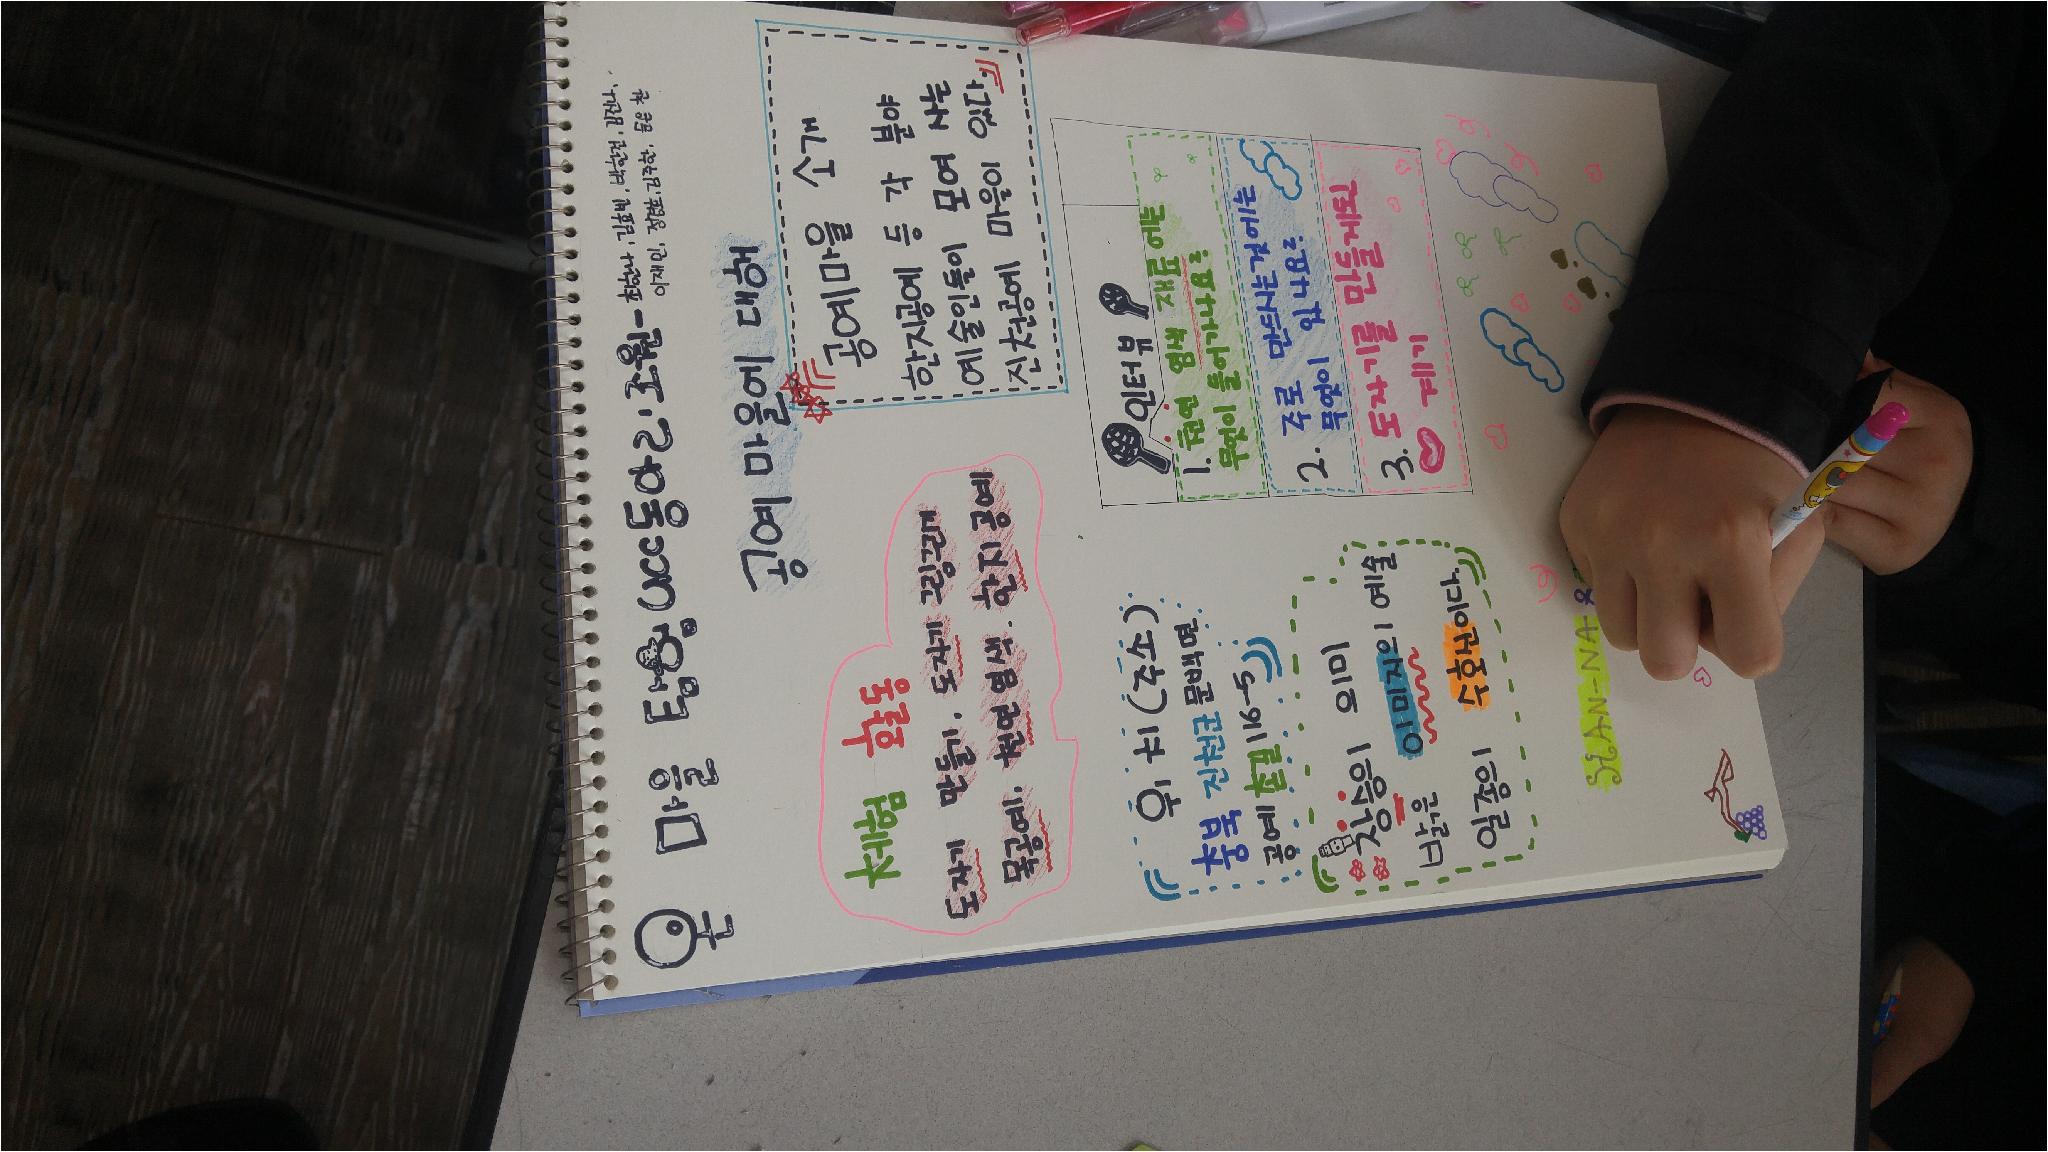 온 마을 탐험 ucc동아리.조원- 최한나, 김효빈, 박한결, 김건나,
이재민, 김주한,
공예 마을에 대해
체험 활동
도자기 만들기. 도자기 그림그리기
목공예. 천연 염색. 한지 공예
공예마을 소개
한지공예 등 각 분야
예술인들이 모여 사는
진천공예 마을이 있다.
위치(주소)
충북 진천군 문백면
공예 촌길 116-5
장승의 의미
밝은 이미지의 예술
일종의 수호신이다.
인터뷰
1. 천연 염색 재료에는
무엇이 들어가나요?
2. 주로 만드시는것에는
무엇이 있나요?
3. 도자기를 만들게된
계기
HAN-NA